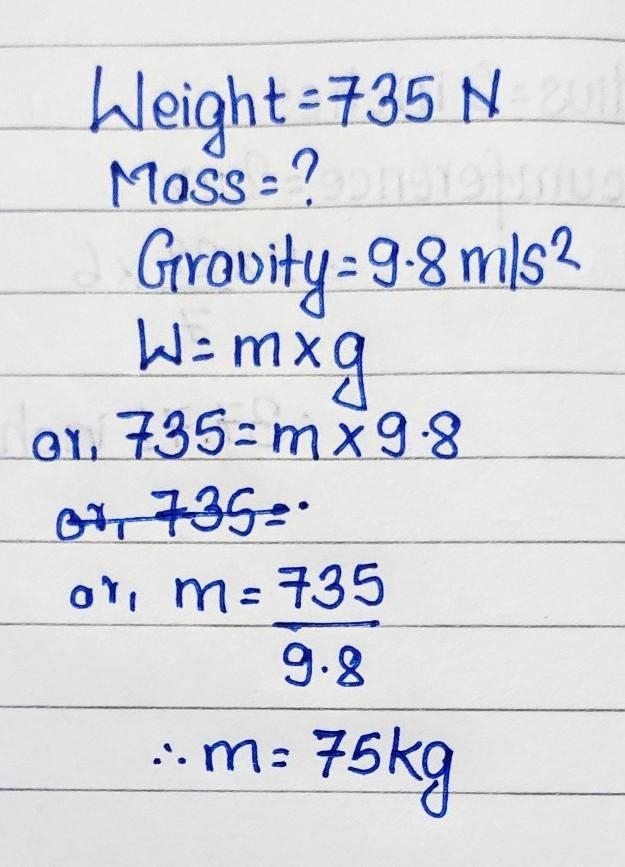 Weight = 735 N
Mass = ?
Gravity = 9.8 m/s²
W = m × g
or, 735 = m × 9.8
or, 735 = .
or, m = 735
9.8
∴ m = 75 kg